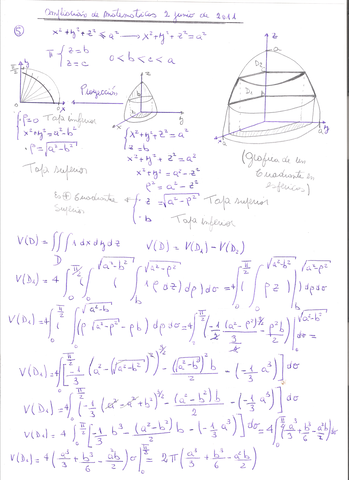 Ampliación de Matemáticas 2 junio de 2011
⑤ x²+y²+z² ≤ a² ⟶ x²+y²+z² = a²
π { z=b
z=c 0<b<c<a
Proyección
ρ=0 Tapa inferior
x²+y² = a²-b²
ρ = √(a²-b²)
Tapa superior
x²+y²+z² = a²
z=b
x²+y²+z² = a²
x²+y² = a²-z²
ρ² = a²-z²
(gráfica de un cuadrante en esférico)
Cuadrante superior
z = √(a²-ρ²) Tapa superior
b
Tapa inferior
V(D) = ∭ 1 dx dy dz V(D) = V(D₁) - V(D₂)
D
V(D₁) = 4 ∫₀^(π/2) ( ∫₀^√(a²-b²) ( ∫_b^√(a²-ρ²) 1 ρ dz) dρ) dσ = 4 ∫₀^(π/2) ( ∫₀^√(a²-b²) ρ z ]_b^√(a²-ρ²) ) dρ dσ
V(D₁) = 4 ∫₀^(π/2) ( ∫₀^√(a²-b²) (ρ √(a²-ρ²) - ρb) dρ dσ = 4 ∫₀^(π/2) (-1/2 (a²-ρ²)^(3/2) / (3/2) - ρ²b/2 ) ]₀^√(a²-b²) dσ =
V(D₁) = 4 ∫₀^(π/2) [ -1/3 (a² - (√(a²-b²))²)^(3/2) - (√(a²-b²))² b / 2 - (-1/3 a³) ] dσ
V(D₁) = 4 ∫₀^(π/2) [ -1/3 (a² - a² + b²)^(3/2) - (a²-b²) b / 2 - (-1/3 a³) ] dσ
V(D₁) = 4 ∫₀^(π/2) [ -1/3 b³ - (a²-b²) b / 2 - (-1/3 a³) ] dσ = 4 ∫₀^(π/2) ( a³/3 + b³/6 - a²b/2 ) dσ
V(D₁) = 4 ( a³/3 + b³/6 - a²b/2 ) σ ]₀^(π/2) = 2π ( a³/3 + b³/6 - a²b/2 )